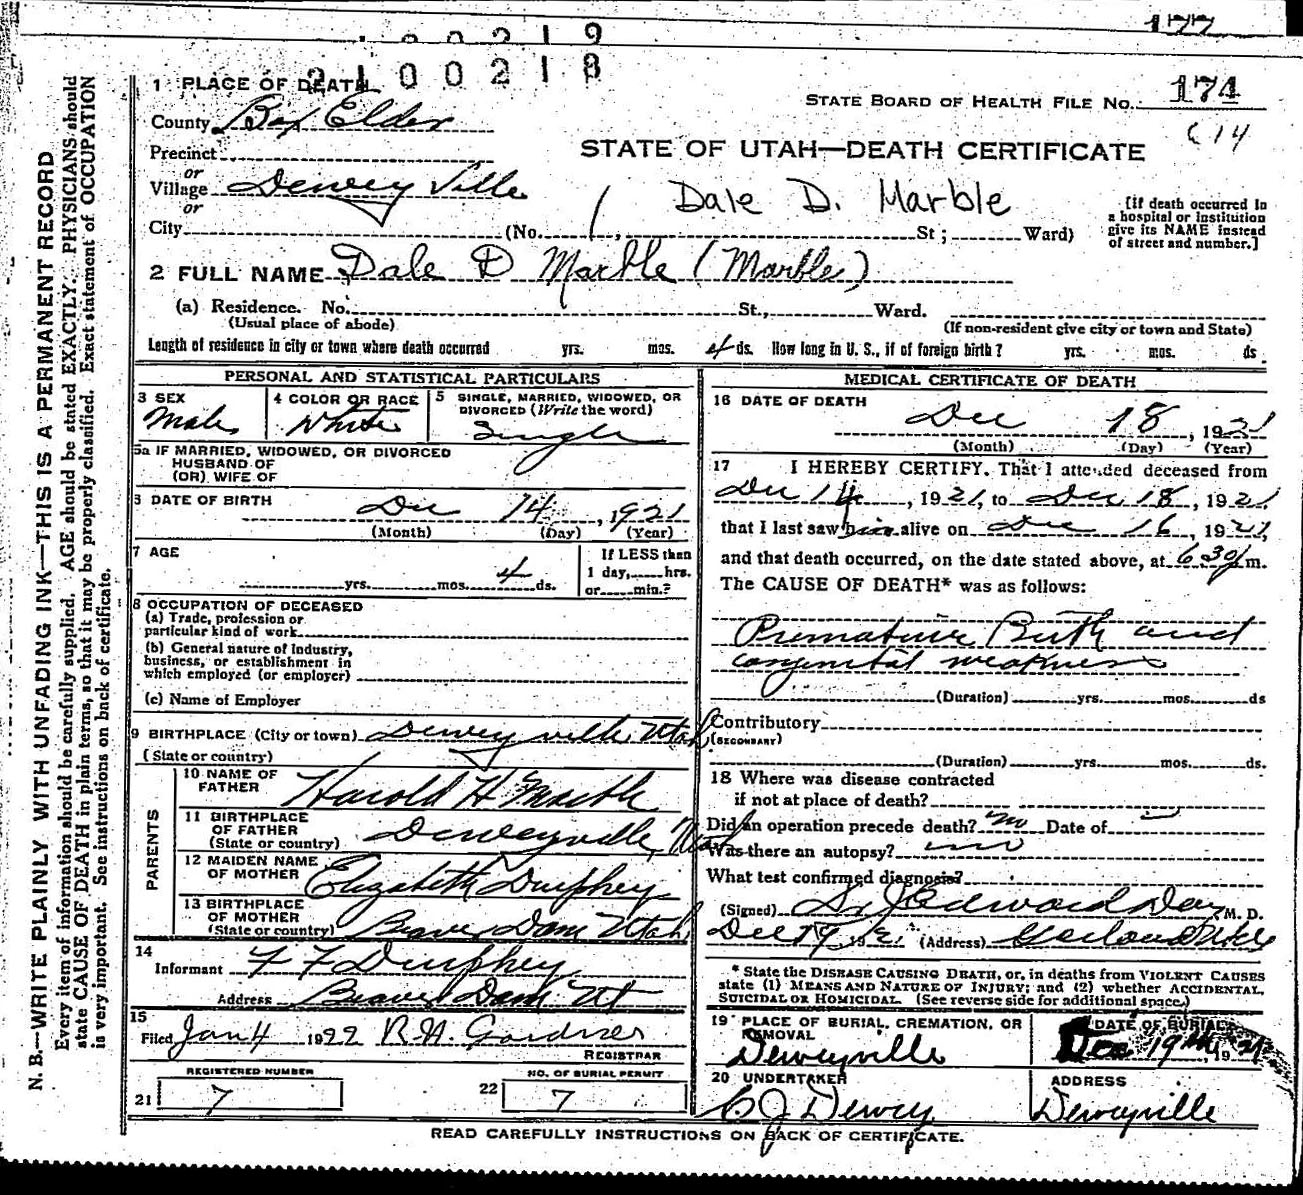 177
100219
2100218
1 PLACE OF DEATH
STATE BOARD OF HEALTH FILE No. 174
C 14
County Box Elder
STATE OF UTAH—DEATH CERTIFICATE
Precinct
or
Village Deweyville
or
Dale D. Marble
[If death occurred in
a hospital or institution
give its NAME instead
of street and number.]
City (No. , St; Ward)
2 FULL NAME Dale D Marble (Marble)
(a) Residence. No. St., Ward.
(Usual place of abode) (If non-resident give city or town and State)
Length of residence in city or town where death occurred yrs. mos. 4 ds. How long in U. S., if of foreign birth? yrs. mos. ds.
PERSONAL AND STATISTICAL PARTICULARS
3 SEX
Male
4 COLOR OR RACE
White
5 SINGLE, MARRIED, WIDOWED, OR
DIVORCED (Write the word)
Single
5a IF MARRIED, WIDOWED, OR DIVORCED
HUSBAND OF
(OR) WIFE OF
3 DATE OF BIRTH
Dec 14, 1921
(Month) (Day) (Year)
7 AGE
yrs. mos. 4 ds.
If LESS then
1 day, hrs.
or min.?
8 OCCUPATION OF DECEASED
(a) Trade, profession or
particular kind of work
(b) General nature of Industry,
business, or establishment in
which employed (or employer)
(c) Name of Employer
9 BIRTHPLACE (City or town) Deweyville Utah
(State or country)
PARENTS
10 NAME OF
FATHER
Harold H Marble
11 BIRTHPLACE
OF FATHER
(State or country)
Deweyville, Utah
12 MAIDEN NAME
OF MOTHER
Elizabeth Durphey
13 BIRTHPLACE
OF MOTHER
(State or country)
Beaver Dam Utah
14
Informant F F Durphey
Address Beaver Dam Ut
15
Filed Jan 4 1922 R.H. Gardner
REGISTRAR
REGISTERED NUMBER
21 7
NO. OF BURIAL PERMIT
22 7
MEDICAL CERTIFICATE OF DEATH
16 DATE OF DEATH
Dec 18, 1921
(Month) (Day) (Year)
17 I HEREBY CERTIFY. That I attended deceased from
Dec 14, 1921, to Dec 18, 1921
that I last saw him alive on Dec 16, 1921,
and that death occurred, on the date stated above, at 630 p m.
The CAUSE OF DEATH* was as follows:
Premature Birth and
congenital weakness
(Duration) yrs. mos. ds
Contributory
(SECONDARY)
(Duration) yrs. mos. ds.
18 Where was disease contracted
if not at place of death?
Did an operation precede death? no Date of
Was there an autopsy? no
What test confirmed diagnosis?
(Signed) Dr J Edward Day M. D.
Dec 19 1921 (Address) Garland Utah
* State the DISEASE CAUSING DEATH, or, in deaths from VIOLENT CAUSES
state (1) MEANS AND NATURE OF INJURY; and (2) whether ACCIDENTAL,
SUICIDAL OR HOMICIDAL. (See reverse side for additional space.)
19 PLACE OF BURIAL, CREMATION, OR
REMOVAL
Deweyville
DATE OF BURIAL
Dec 19th 1921
20 UNDERTAKER
C J Dewey
ADDRESS
Deweyville
READ CAREFULLY INSTRUCTIONS ON BACK OF CERTIFICATE.
N. B.—WRITE PLAINLY WITH UNFADING INK—THIS IS A PERMANENT RECORD
Every item of information should be carefully supplied. AGE should be stated EXACTLY. PHYSICIANS should
state CAUSE OF DEATH in plain terms, so that it may be properly classified. Exact statement of OCCUPATION
is very important. See instructions on back of certificate.